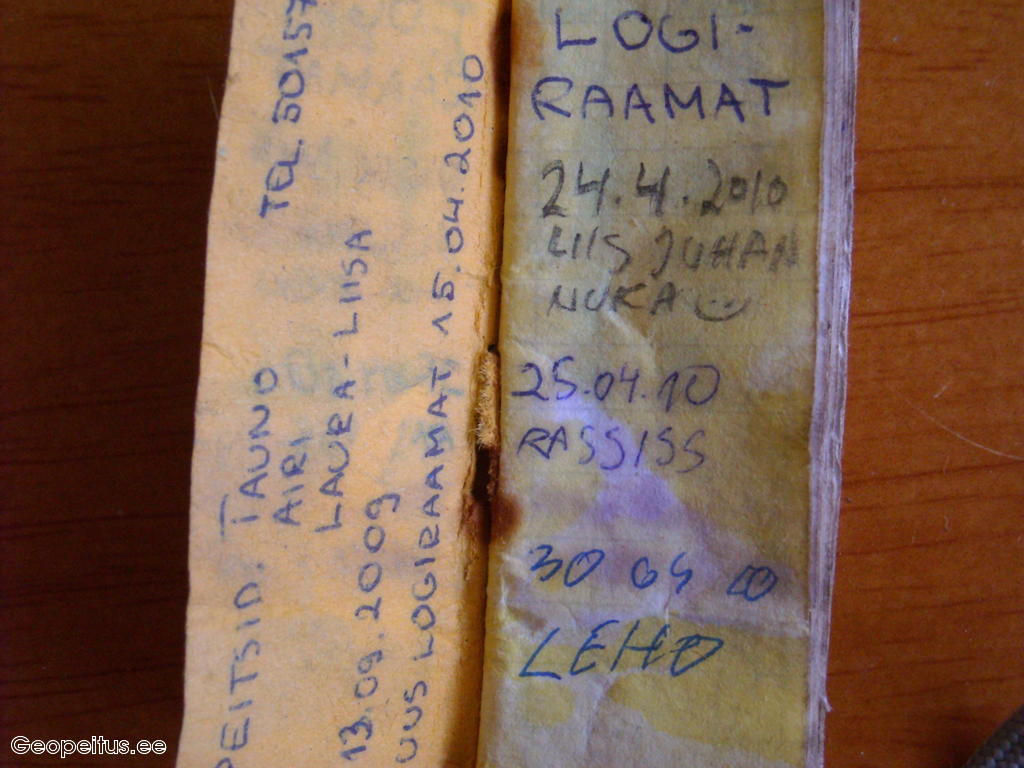 PEITSID: TAUNO
AIRI
LAURA-LIISA
TEL. 50157
13.09.2009
UUS LOGIRAAMAT 15.04.2010
LOGI-
RAAMAT
24.4.2010
LIIS JUHAN
NUKA
25.04.10
RASSISS
30 04 10
LEHO
Geopeitus.ee